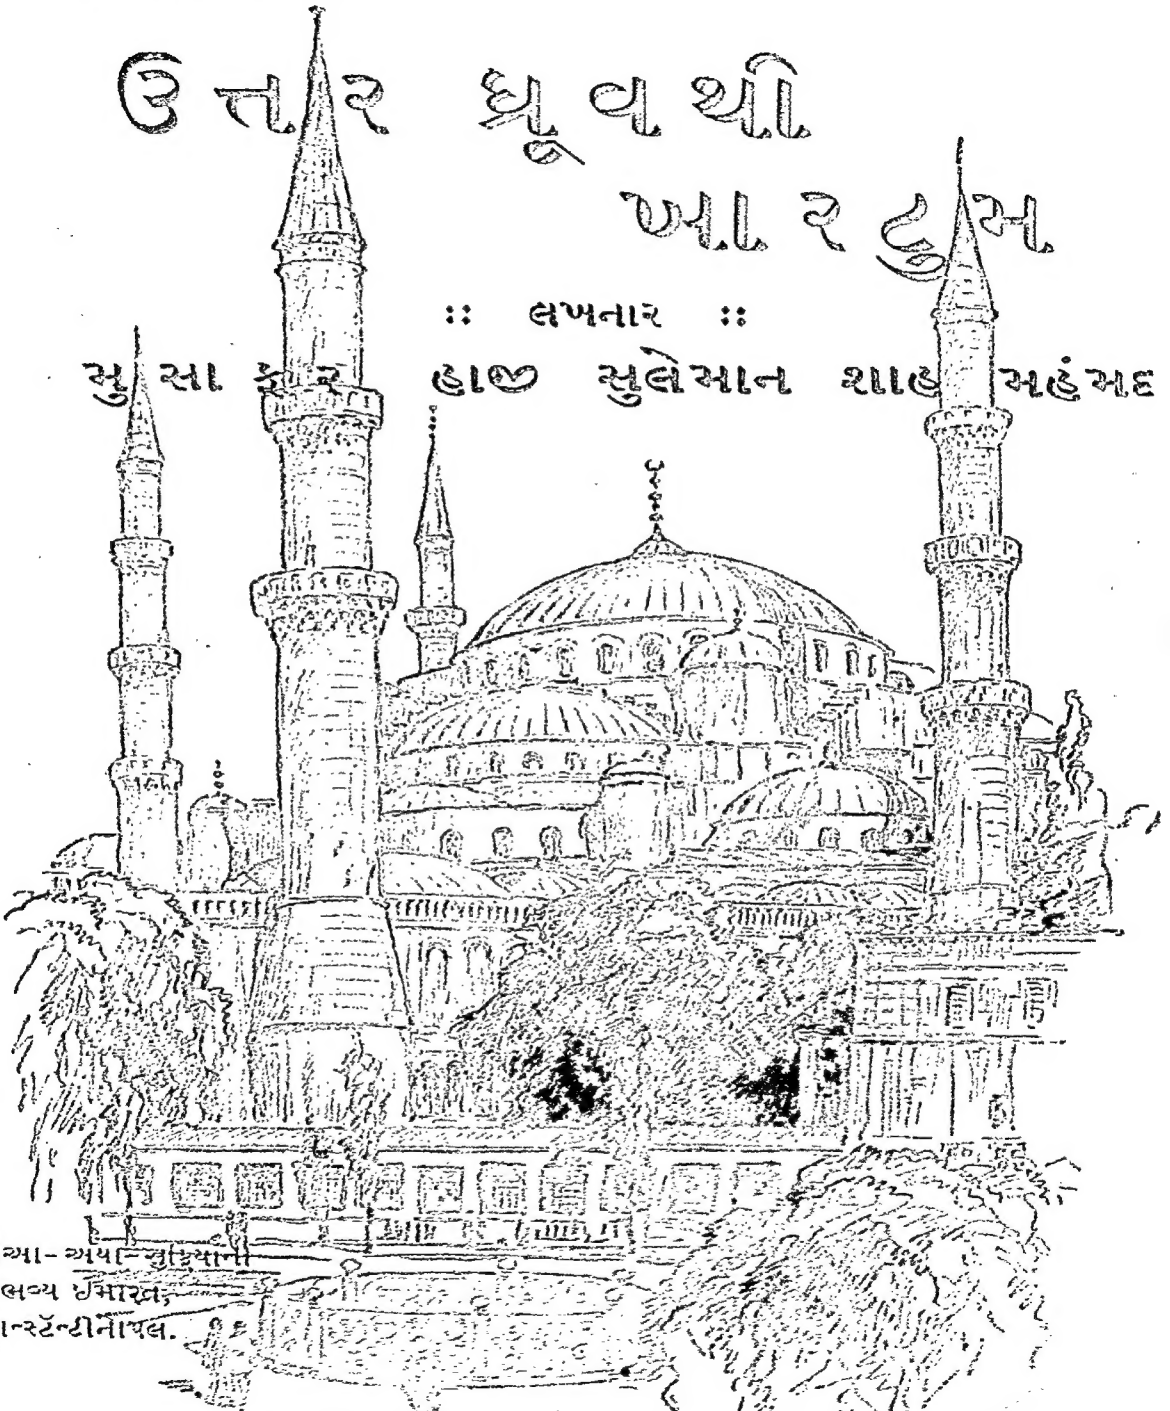 ઉત્તાર ધ્રૂવથી
ખારટુમ
:: લખનાર ::
મુસાફર હાજી સુલેમાન શાહ મહંમદ
આ-અયા-સુફિયાની
ભવ્ય ઈમારત;
ન્સ્ટૅન્ટીનોપલ.